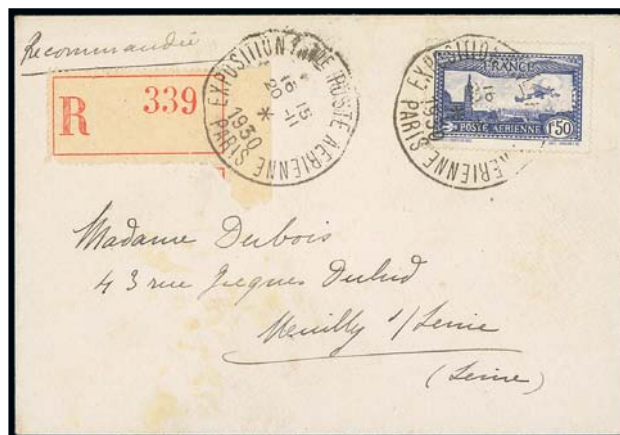 Recommandée
R 339
EXPOSITION INTLE POSTE AERIENNE
16 15
20 -11
1930
*
PARIS
EXPOSITION AERIENNE
16
1930
PARIS
FRANCE
POSTE AERIENNE
1F50
Madame Dubois
43 rue Jacques Dulud
Neuilly s/Seine
(Seine)